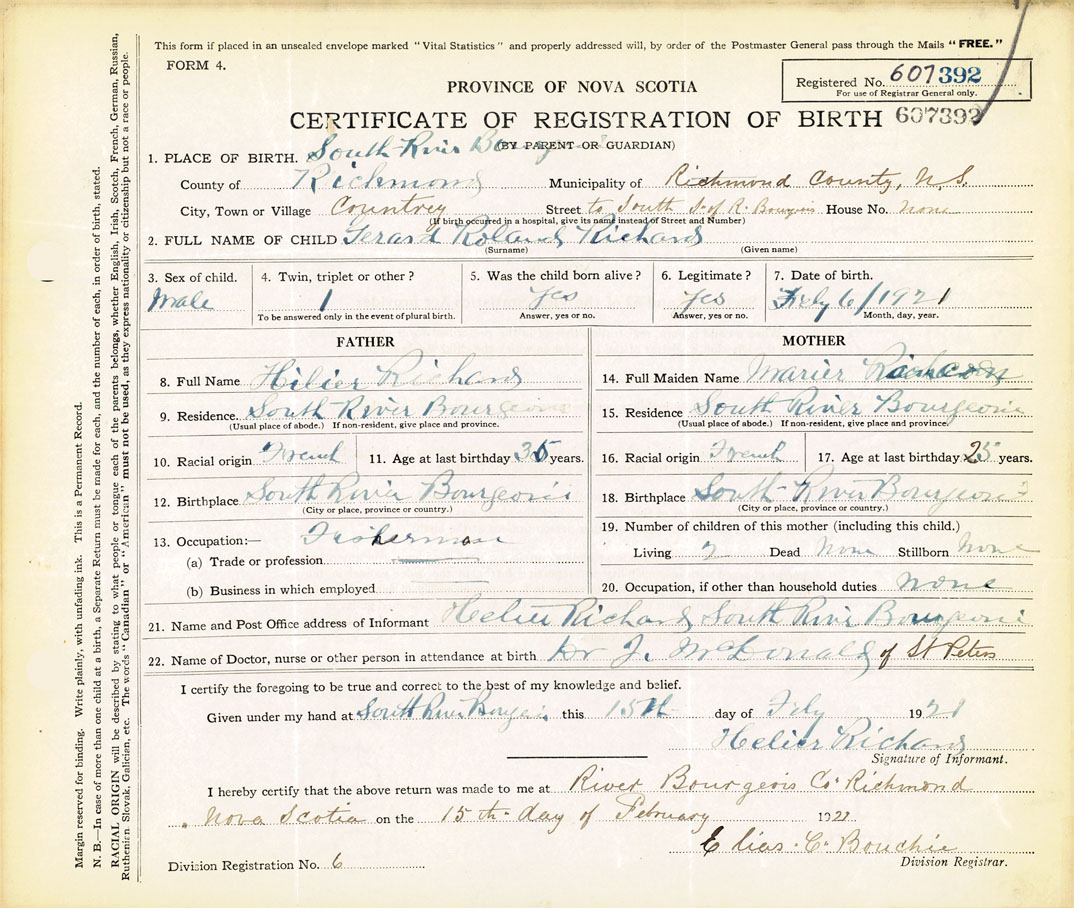 This form if placed in an unsealed envelope marked "Vital Statistics" and properly addressed will, by order of the Postmaster General pass through the Mails "FREE."
FORM 4.
Registered No. 607392
For use of Registrar General only.
PROVINCE OF NOVA SCOTIA
CERTIFICATE OF REGISTRATION OF BIRTH 607392
(BY PARENT OR GUARDIAN)
1. PLACE OF BIRTH. South River
County of Richmond Municipality of Richmond County, N.S.
City, Town or Village Countrey Street to South S. of R. Bourgeois House No. none
(If birth occurred in a hospital, give its name instead of Street and Number)
2. FULL NAME OF CHILD Gerard Roland Richard
(Surname) (Given name)
3. Sex of child. 4. Twin, triplet or other? 5. Was the child born alive? 6. Legitimate? 7. Date of birth.
Male 1 yes yes 6/1921
To be answered only in the event of plural birth. Answer, yes or no. Answer, yes or no. Month, day, year.
FATHER
8. Full Name Hilier Richard
9. Residence. South River Bourgeois
(Usual place of abode.) If non-resident, give place and province.
10. Racial origin French 11. Age at last birthday 35 years.
12. Birthplace South River Bourgeois
(City or place, province or country.)
13. Occupation:— Fisherman
(a) Trade or profession
(b) Business in which employed
MOTHER
14. Full Maiden Name Marier
15. Residence South River Bourgeois
(Usual place of abode.) If non-resident, give place and province.
16. Racial origin French 17. Age at last birthday 25 years.
18. Birthplace South River Bourgeois
(City or place, province or country.)
19. Number of children of this mother (including this child.)
Living 2 Dead None Stillborn None
20. Occupation, if other than household duties none
21. Name and Post Office address of Informant Helier Richard South River Bourgeois
22. Name of Doctor, nurse or other person in attendance at birth Dr J. McDonald of St Peters
I certify the foregoing to be true and correct to the best of my knowledge and belief.
Given under my hand at South River this 15th day of 1921
Helier Richard
Signature of Informant.
I hereby certify that the above return was made to me at River Bourgeois Co Richmond
Nova Scotia on the 15th day of February 1921
Elias C. Bouchie
Division Registrar.
Division Registration No. 6
Margin reserved for binding. Write plainly, with unfading ink. This is a Permanent Record.
N. B.—In case of more than one child at a birth, a Separate Return must be made for each, and the number of each, in order of birth, stated.
RACIAL ORIGIN will be described by stating to what people or tongue each of the parents belongs, whether English, Irish, Scotch, French, German, Russian,
Ruthenirn, Slovak, Galician, etc. The words "Canadian" or "American" must not be used, as they express nationality or citizenship but not a race or people.